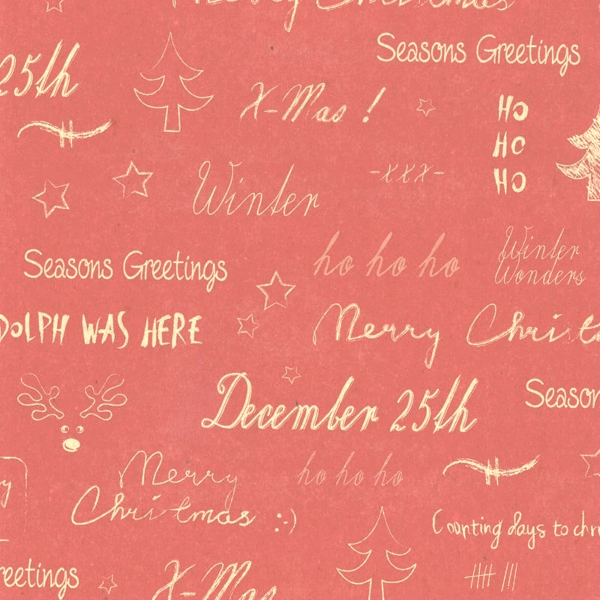 Merry Christmas
Seasons Greetings
25th
X-Mas !
HO
HO
HO
-xxx-
Winter
ho ho ho
Winter
Wonders
Seasons Greetings
DOLPH WAS HERE
Merry Christ
December 25th
Season
Merry
Christmas :-)
ho ho ho
y
Counting days to chr
reetings
X-Mas